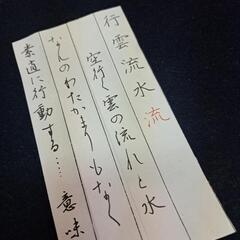 行雲流水流
空行く雲の流れと水
なんのわだかまりもなく
素直に行動する……意味